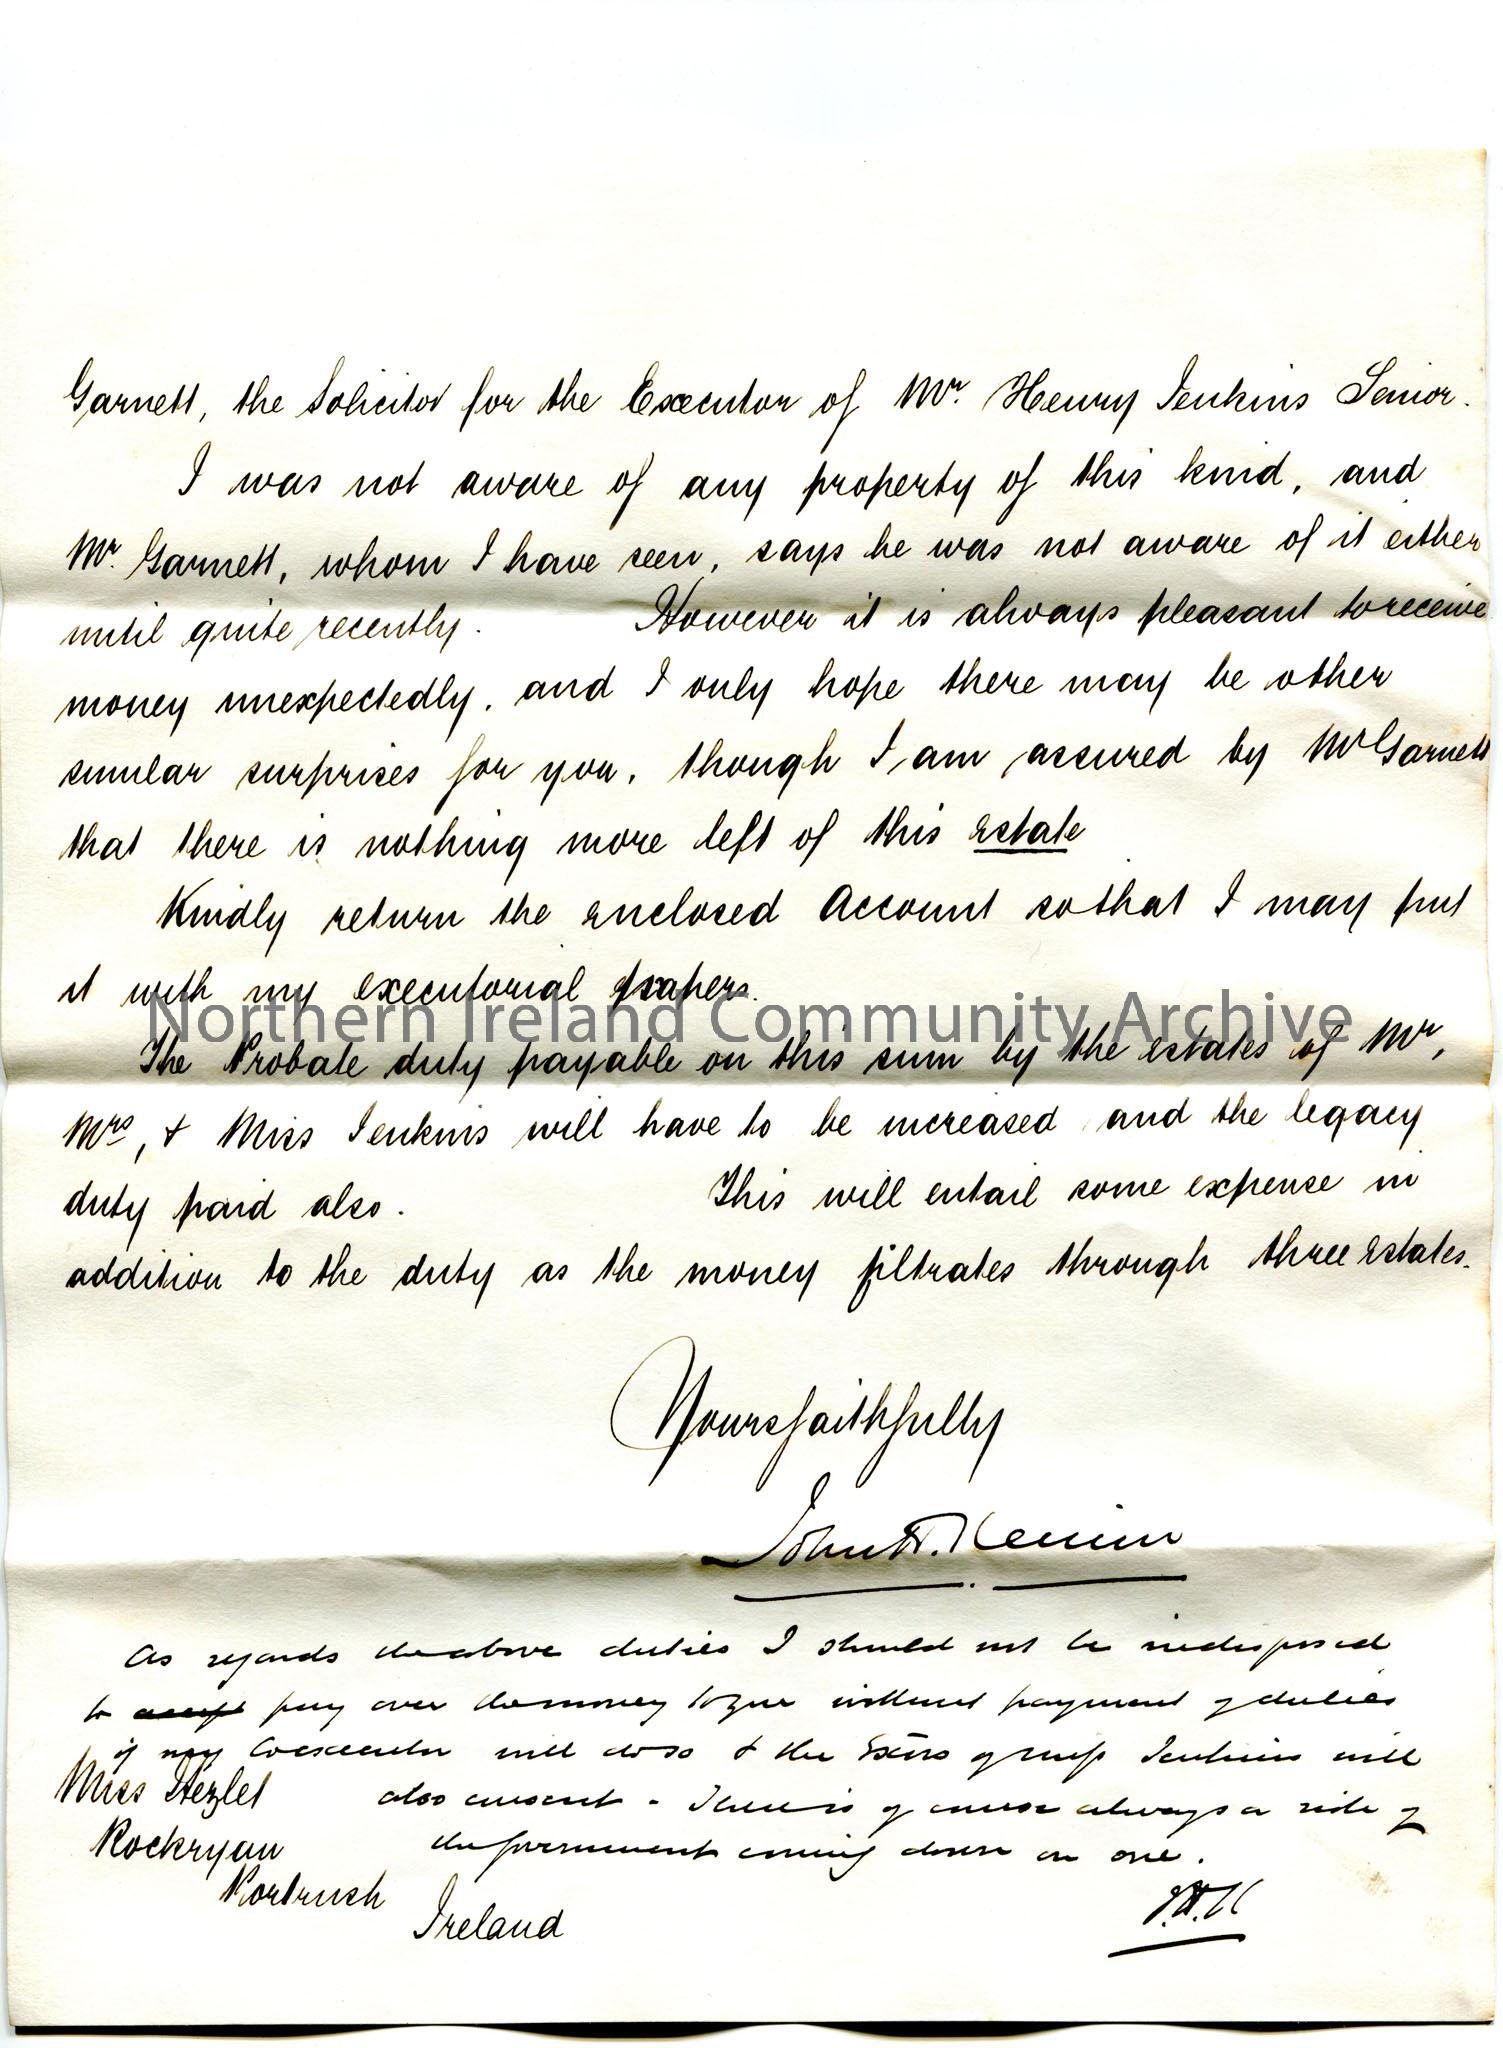 Garnett, the Solicitor for the Executor of Mr. Henry Jenkins Senior.
I was not aware of any property of this kind, and
Mr. Garnett, whom I have seen, says he was not aware of it either
until quite recently. However it is always pleasant to receive
money unexpectedly, and I only hope there may be other
similar surprises for you, though I am assured by Mr Garnett
that there is nothing more left of this estate
Kindly return the enclosed Account so that I may put
it with my executorial papers.
Northern Ireland Community Archive
The Probate duty payable on this sum by the estates of Mr,
Mrs, & Miss Jenkins will have to be increased and the legacy
duty paid also. This will entail some expense in
addition to the duty as the money filtrates through three estates.
Yours faithfully
John H.
As regards the above duties I should not be indisposed
to accept pay over the money to you without payment of duties
if my Coexecutor will do so & the Exors of Jenkins will
also consent - There is of course always a risk of
the Government coming down on one.
J.H.K
Miss Hezlet
Rockryan
Portrush
Ireland